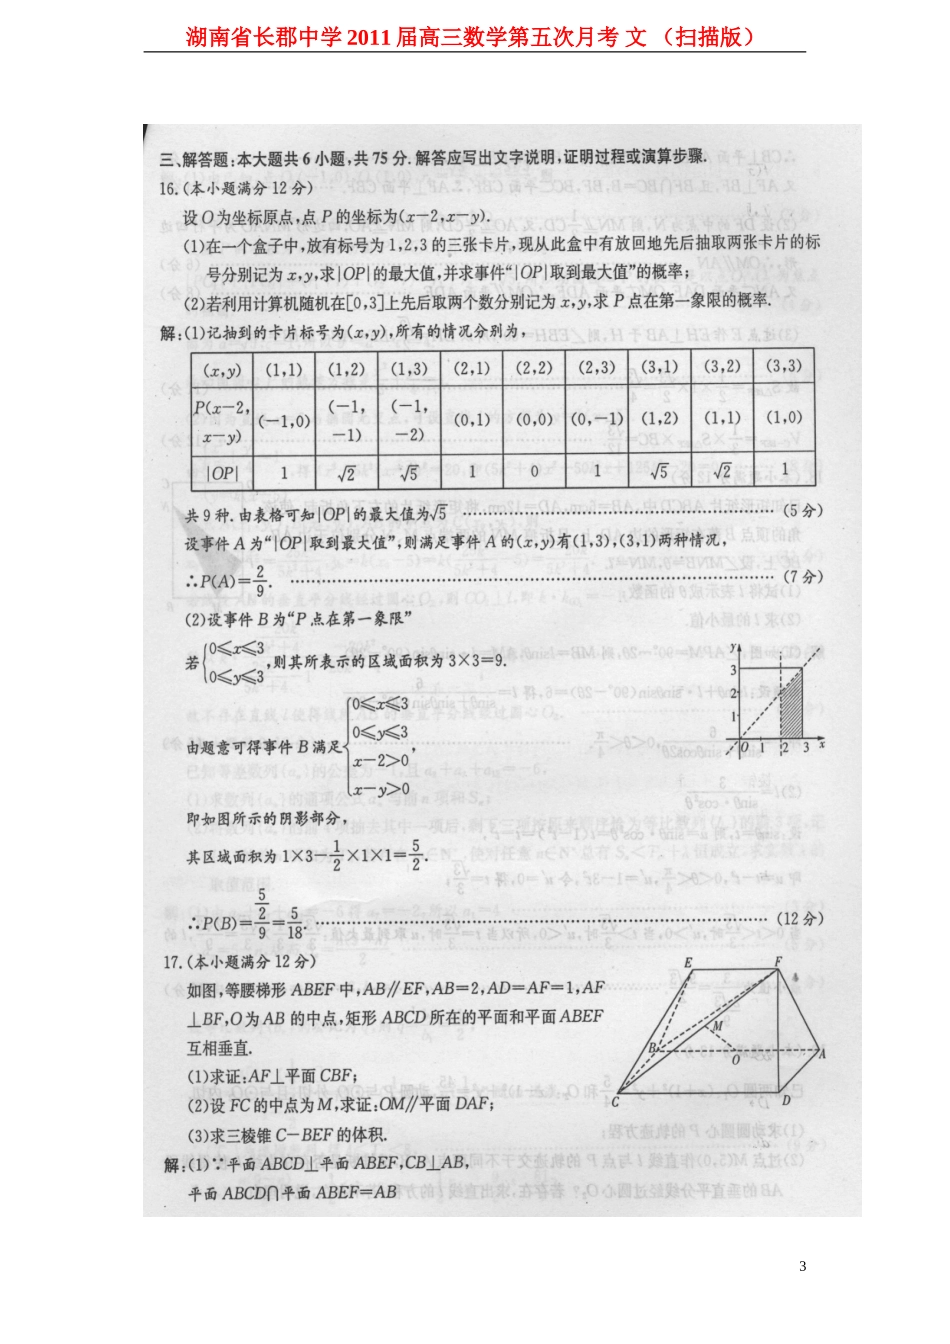 湖南省长郡中学 2011 届高三数学第五次月考 文 （扫描版）
三、解答题:本大题共 6 小题,共 75 分.解答应写出文字说明,证明过程或演算步骤.
16.(本小题满分 12 分)
设 O 为坐标原点,点 P 的坐标为(x−2,x−y).
(1)在一个盒子中,放有标号为 1,2,3 的三张卡片,现从此盒中有放回地先后抽取两张卡片的标
号分别记为 x,y,求|OP|的最大值,并求事件“|OP|取到最大值”的概率;
(2)若利用计算机随机在[0,3]上先后取两个数分别记为 x,y,求 P 点在第一象限的概率.
解:(1)记抽到的卡片标号为(x,y),所有的情况分别为,
(x,y) (1,1) (1,2) (1,3) (2,1) (2,2) (2,3) (3,1) (3,2) (3,3)
P(x−2,x−y) (−1,0) (−1,−1) (−1,−2) (0,1) (0,0) (0,−1) (1,2) (1,1) (1,0)
|OP| 1 √2 √5 1 0 1 √5 √2 1
共 9 种.由表格可知|OP|的最大值为√5 …… (5 分)
设事件 A 为“|OP|取到最大值”,则满足事件 A 的(x,y)有(1,3),(3,1)两种情况,
∴P(A)=2/9. …… (7 分)
(2)设事件 B 为“P 点在第一象限”
若{0≤x≤3 0≤y≤3,则其所表示的区域面积为 3×3=9.
由题意可得事件 B 满足{0≤x≤3 0≤y≤3 x−2>0 x−y>0,
y 3 2 1 O 1 2 3 x
即如图所示的阴影部分,
其区域面积为 1×3−1/2×1×1=5/2.
∴P(B)=(5/2)/9=5/18. …… (12 分)
17.(本小题满分 12 分)
如图,等腰梯形 ABEF 中,AB∥EF,AB=2,AD=AF=1,AF
⊥BF,O 为 AB 的中点,矩形 ABCD 所在的平面和平面 ABEF
互相垂直.
(1)求证:AF⊥平面 CBF;
(2)设 FC 的中点为 M,求证:OM∥平面 DAF;
(3)求三棱锥 C−BEF 的体积.
E F M B O A C D
解:(1)∵平面 ABCD⊥平面 ABEF,CB⊥AB,
平面 ABCD∩平面 ABEF=AB
3